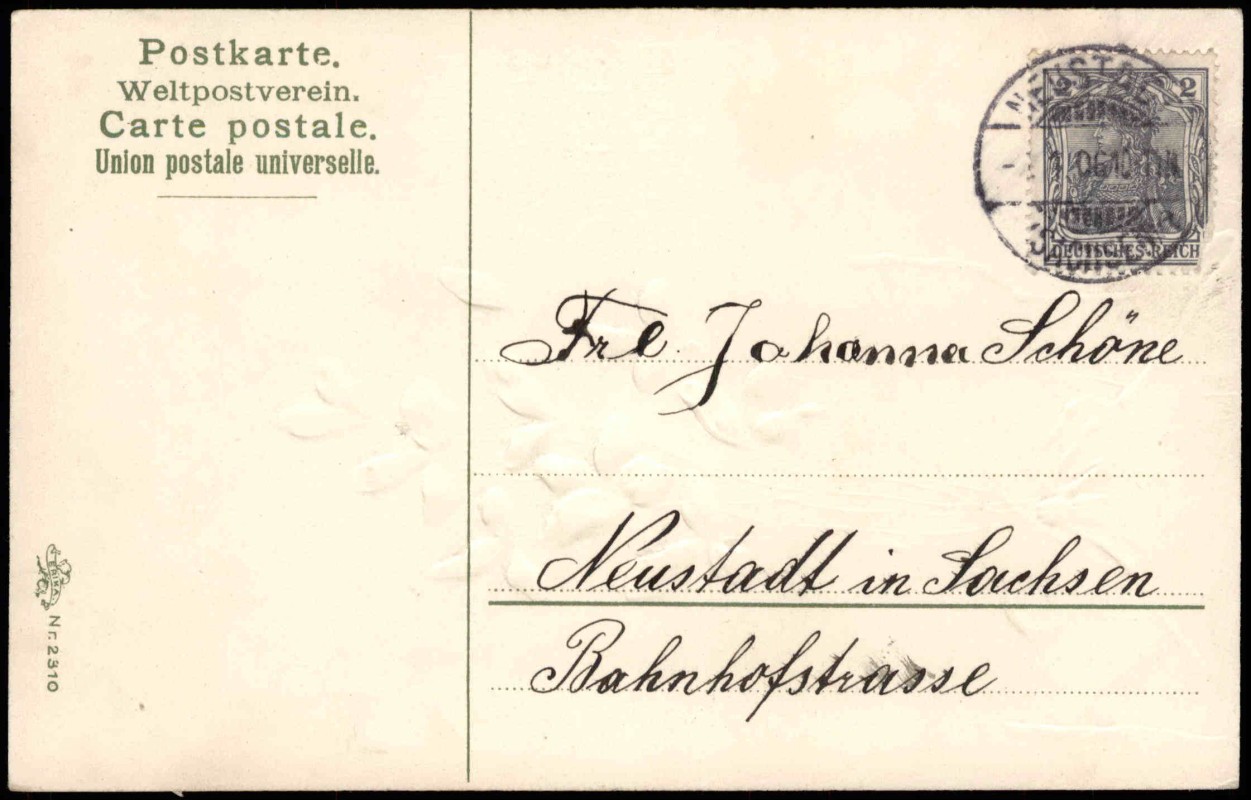 Postkarte.
Weltpostverein.
Carte postale.
Union postale universelle.
2 2
DEUTSCHES REICH
Frl. Johanna Schöne
Neustadt in Sachsen
Bahnhofstrasse
ERIKA
Nr. 2310